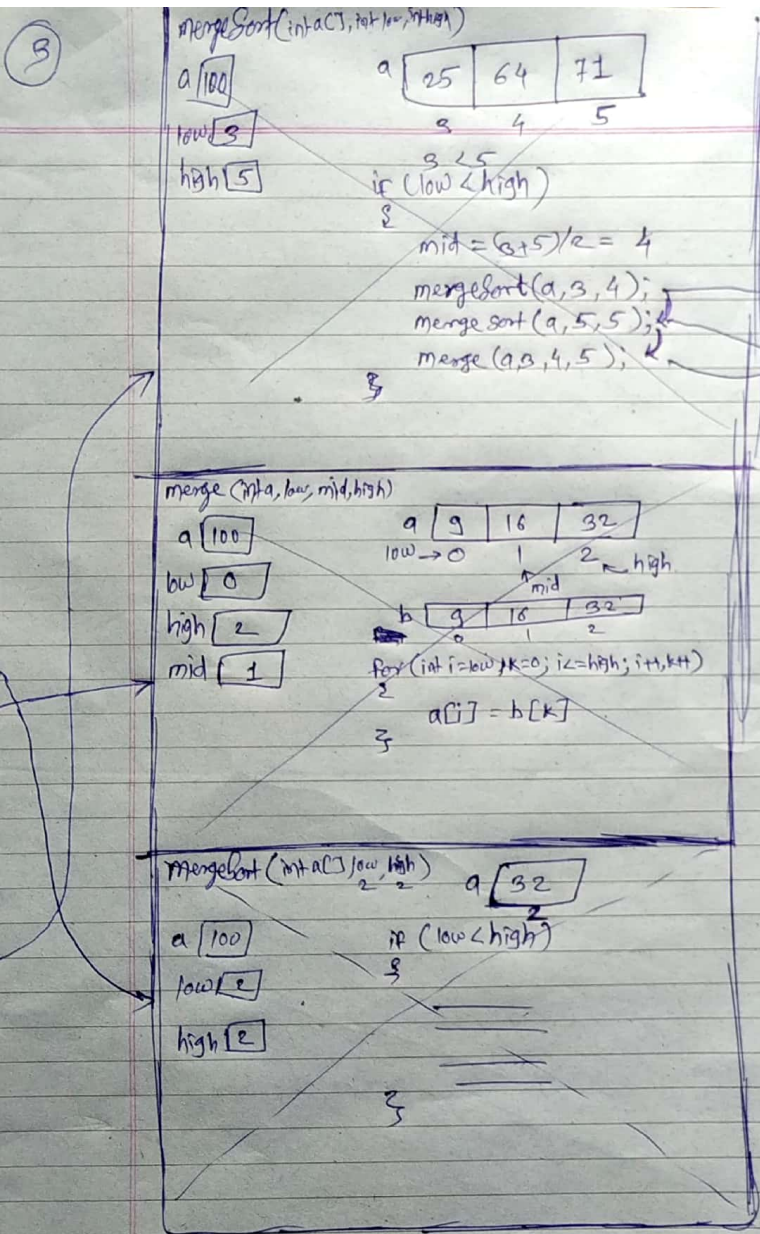 3
mergeSort(int a[], int low, int high)
a 100
a 25 64 71
3 4 5
low 3
high 5
3 < 5
if (low < high)
{
mid = (3+5)/2 = 4
mergeSort(a,3,4);
merge sort (a,5,5);
merge (a,3,4,5);
}
merge (int a, low, mid, high)
a 100
low 0
high 2
mid 1
a 9 16 32
low → 0 1 2 high
mid
b 9 16 32
0 1 2
for(int i=low, k=0; i<=high; i++, k++)
{
a[i] = b[k]
}
mergeSort (int a[], low, high)
2 2
a 32
2
a 100
low 2
high 2
if (low < high)
{
}